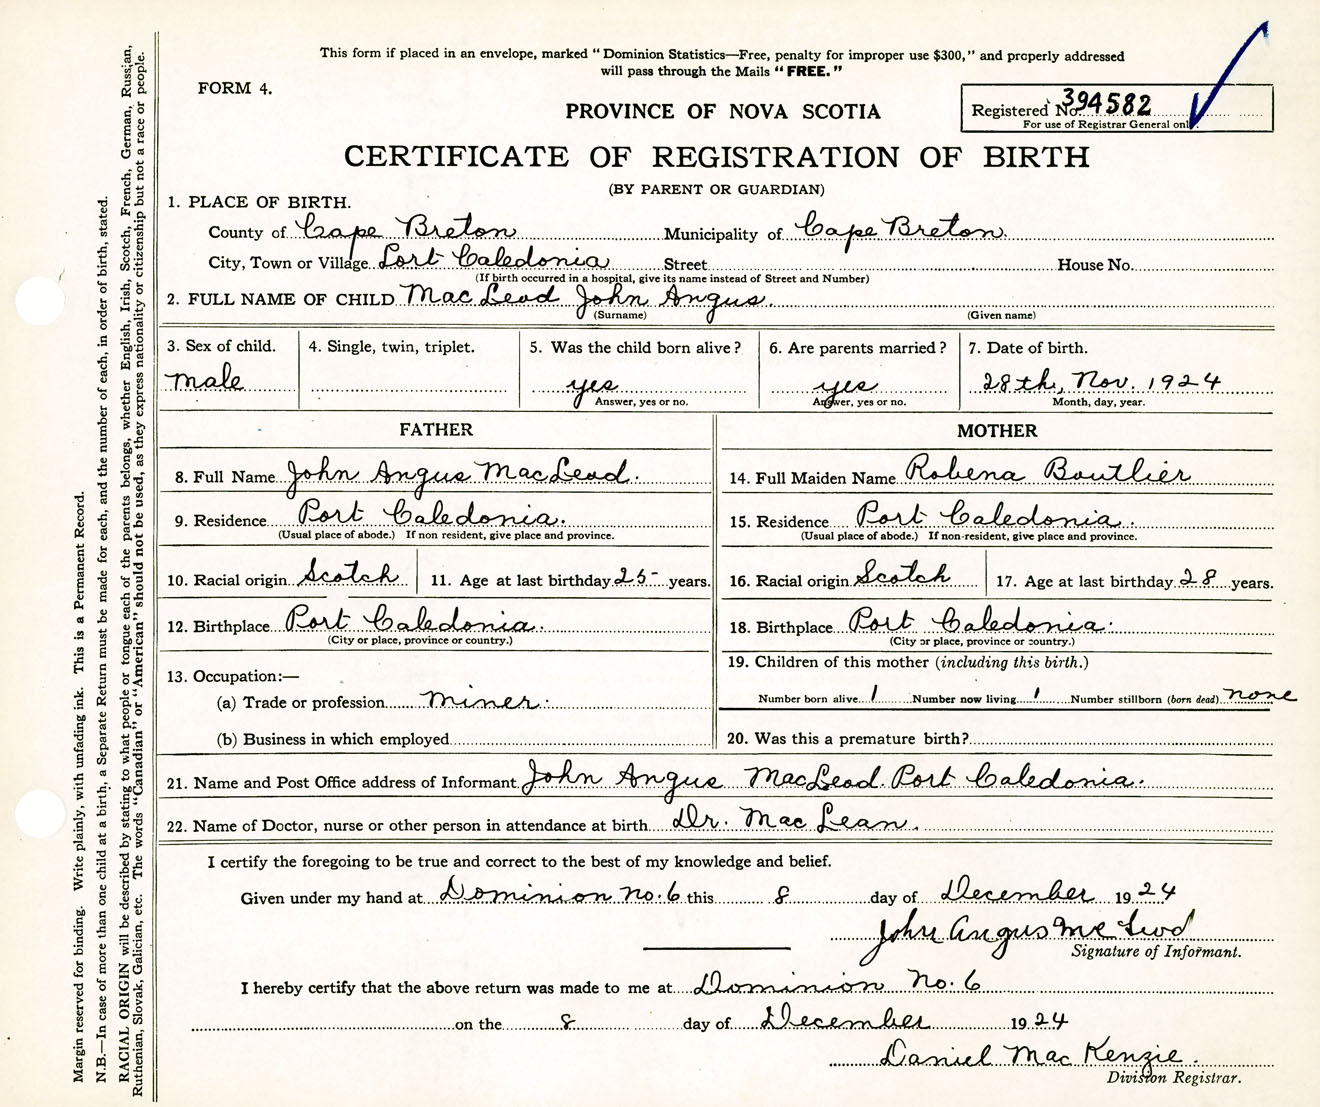 This form if placed in an envelope, marked "Dominion Statistics—Free, penalty for improper use $300," and properly addressed
will pass through the Mails "FREE."
FORM 4.
PROVINCE OF NOVA SCOTIA
Registered No. 394582
For use of Registrar General only.
CERTIFICATE OF REGISTRATION OF BIRTH
(BY PARENT OR GUARDIAN)
1. PLACE OF BIRTH.
County of Cape Breton Municipality of Cape Breton.
City, Town or Village Port Caledonia Street House No.
(If birth occurred in a hospital, give its name instead of Street and Number)
2. FULL NAME OF CHILD MacLeod John Angus.
(Surname) (Given name)
3. Sex of child. 4. Single, twin, triplet. 5. Was the child born alive? 6. Are parents married? 7. Date of birth.
male yes yes 28th, Nov. 1924
Answer, yes or no. Answer, yes or no. Month, day, year.
FATHER MOTHER
8. Full Name John Angus MacLeod. 14. Full Maiden Name Robena Boutlier
9. Residence Port Caledonia. 15. Residence Port Caledonia.
(Usual place of abode.) If non resident, give place and province. (Usual place of abode.) If non-resident, give place and province.
10. Racial origin Scotch 11. Age at last birthday 25 years. 16. Racial origin Scotch 17. Age at last birthday 28 years.
12. Birthplace Port Caledonia. 18. Birthplace Port Caledonia.
(City or place, province or country.) (City or place, province or country.)
19. Children of this mother (including this birth.)
13. Occupation:—
(a) Trade or profession miner. Number born alive 1 Number now living 1 Number stillborn (born dead) none
(b) Business in which employed 20. Was this a premature birth?
21. Name and Post Office address of Informant John Angus MacLeod. Port Caledonia.
22. Name of Doctor, nurse or other person in attendance at birth Dr. MacLean.
I certify the foregoing to be true and correct to the best of my knowledge and belief.
Given under my hand at Dominion No. 6 this 8 day of December 1924
John Angus McLeod
Signature of Informant.
I hereby certify that the above return was made to me at Dominion No. 6
on the 8 day of December 1924
Daniel MacKenzie.
Division Registrar.
Margin reserved for binding. Write plainly, with unfading ink. This is a Permanent Record.
N.B.—In case of more than one child at a birth, a Separate Return must be made for each, and the number of each, in order of birth, stated.
RACIAL ORIGIN will be described by stating to what people or tongue each of the parents belongs, whether English, Irish, Scotch, French, German, Russian,
Ruthenian, Slovak, Galician, etc. The words "Canadian" or "American" should not be used, as they express nationality or citizenship but not a race or people.